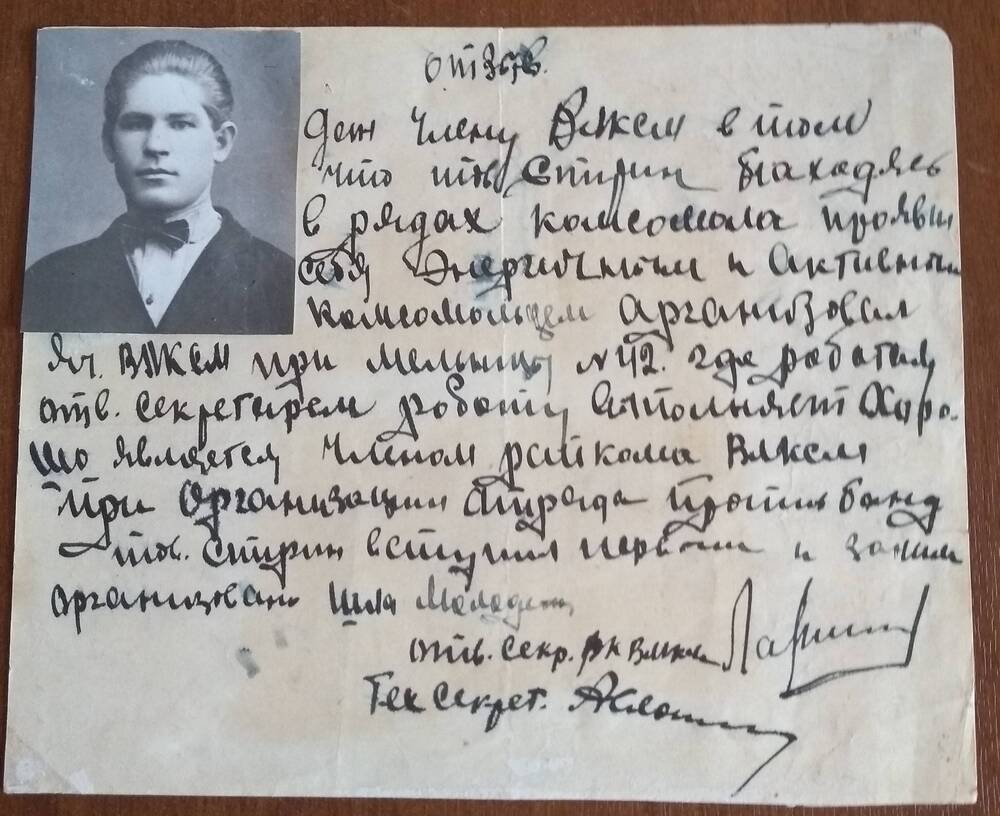 отзыв.
Дан Члену ВЛКСМ в том
что тов Спирин Находясь
в рядах комсомола проявил
себя Энергичным и Активным
комсомольцем Организовал
Яч. ВЛКСМ при мельнице N 42. где работая
отв. секретарем работу выполняет Хоро-
шо является Членом райкома ВЛКСМ
При Организации Отряда Против банд
тов. Спирин вступил первым и за ним
организовано шла Молодежь
отв. секр. РК ВЛКСМ
Тех секрет.